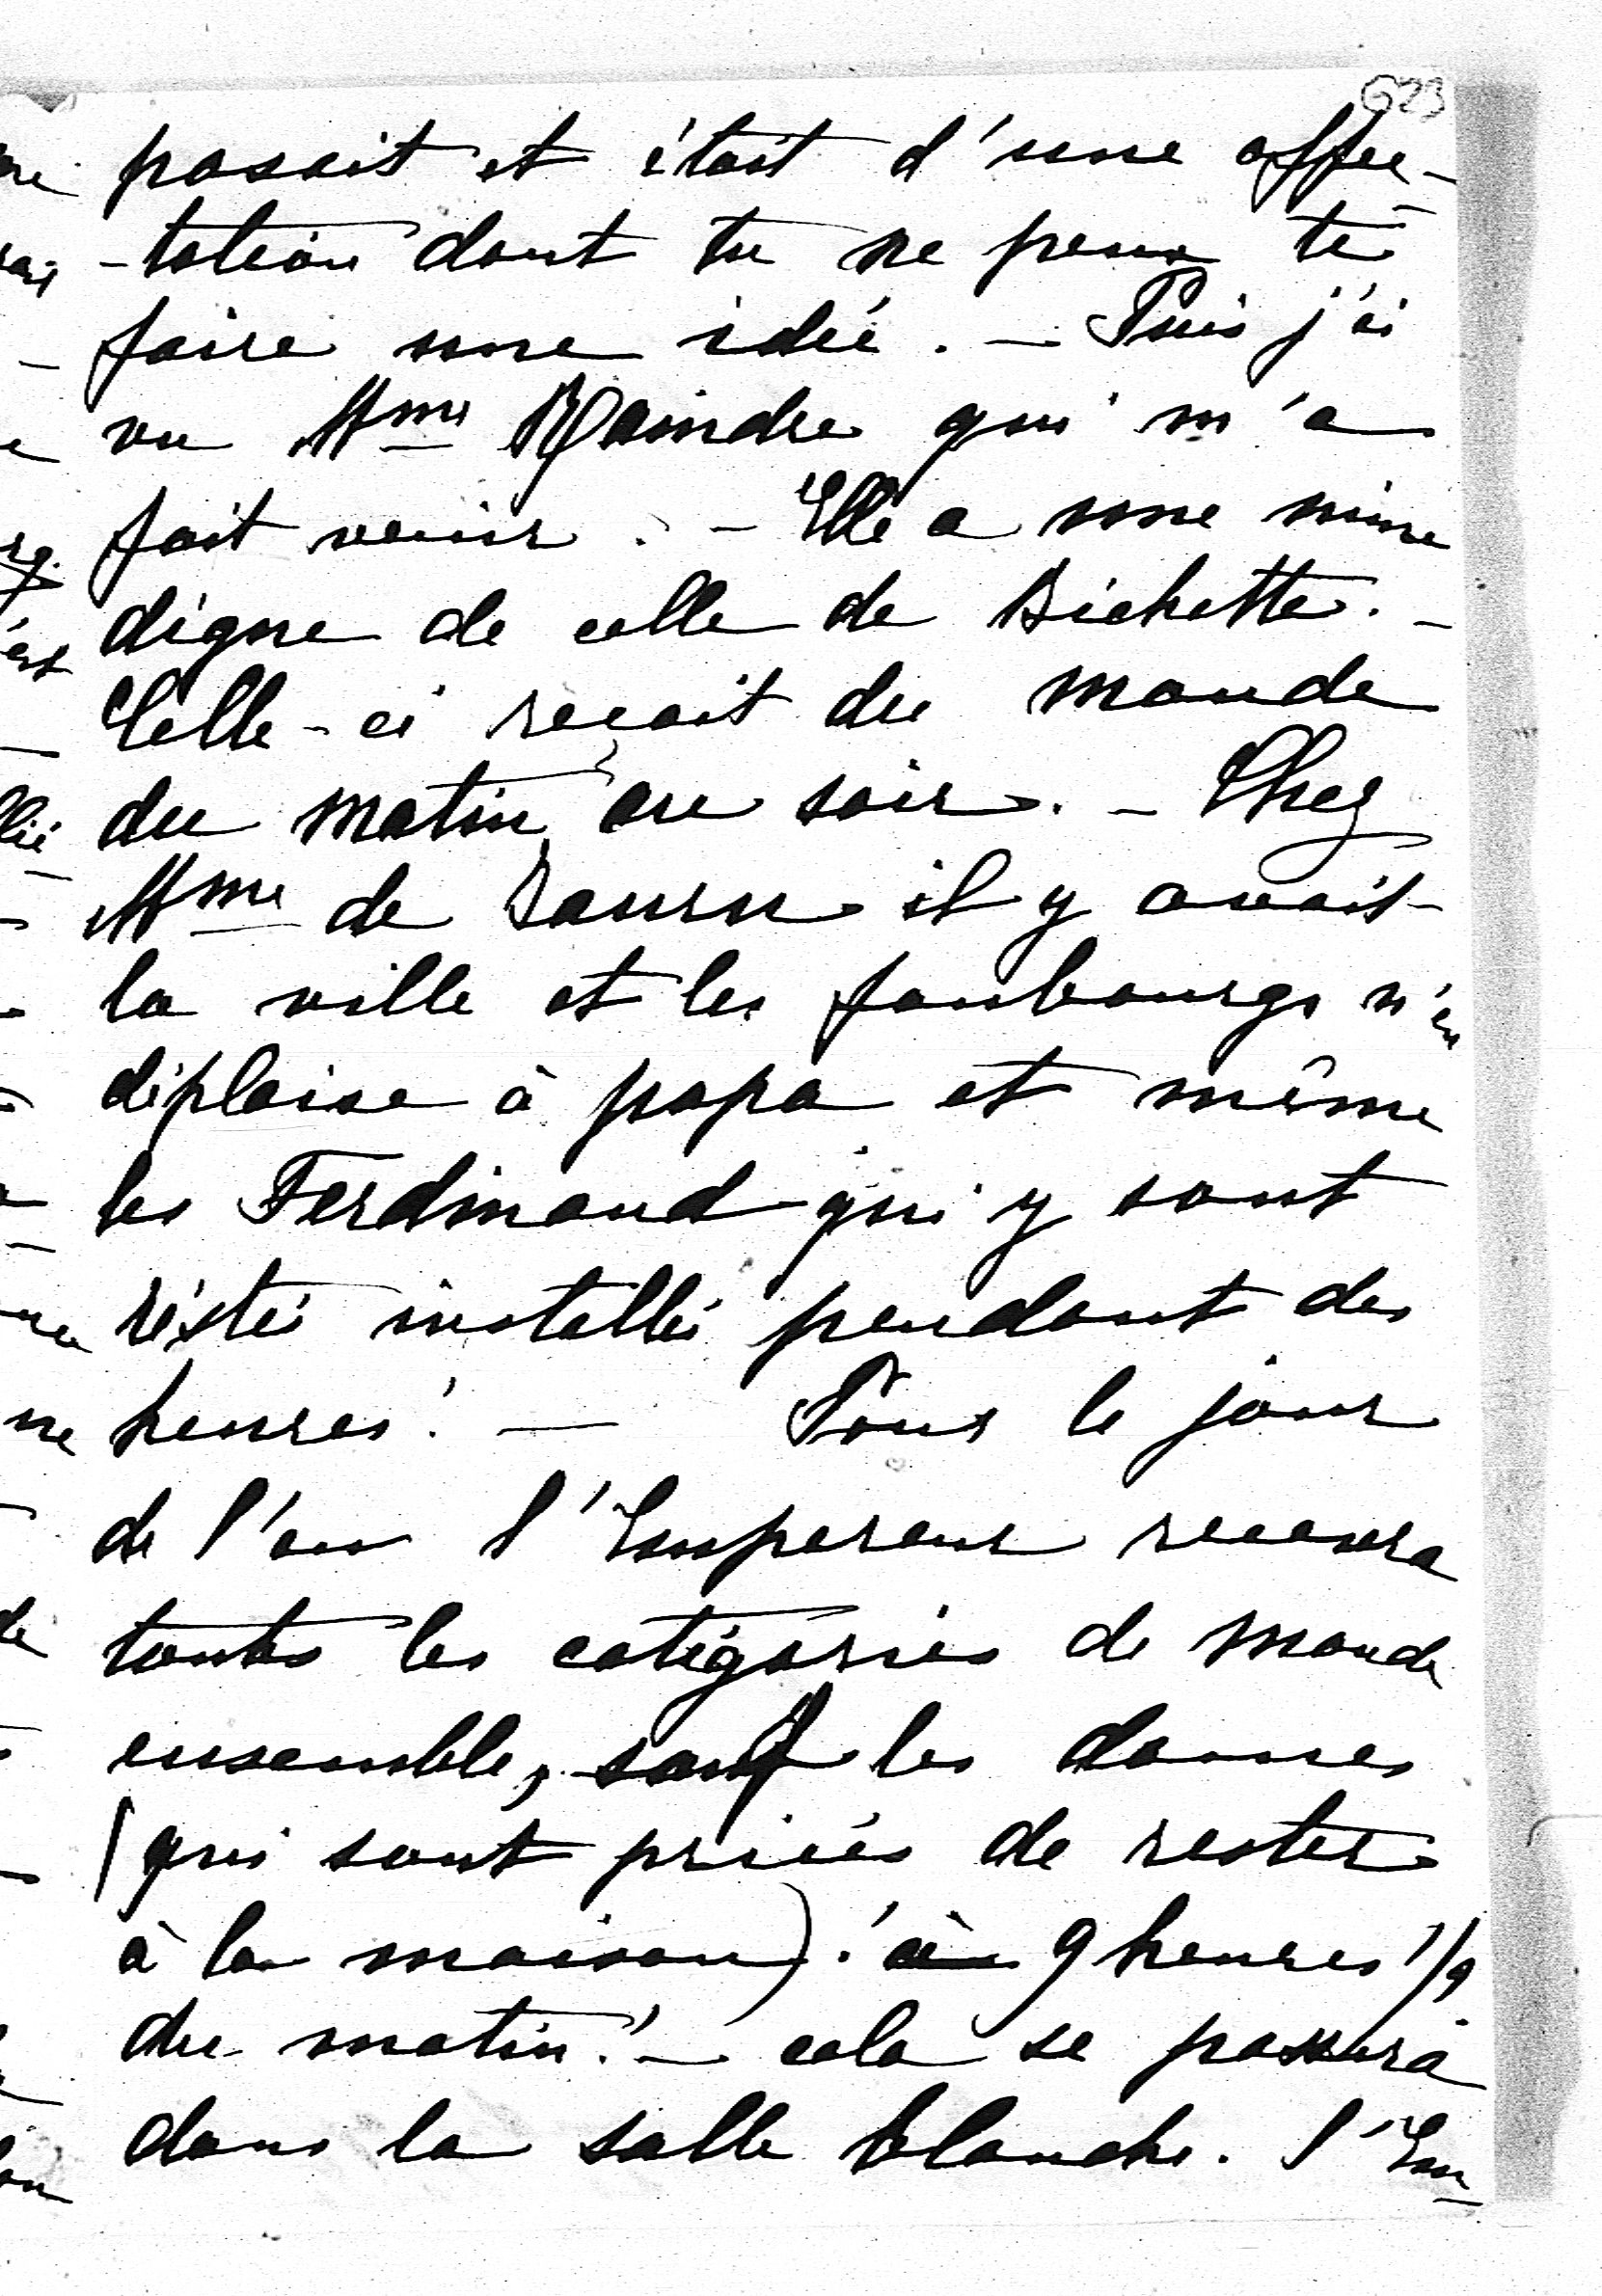 623
posait et était d'une affec-
-tation dont tu ne peux te
faire une idée. - Puis j'ai
vu Mme Raindre qui m'a
fait venir. - Elle a une mine
digne de celle de Bichette. -
Celle-ci reçoit du monde
du matin au soir. - Chez
Mme de il y avait
la ville et les faubourgs n'en
déplaise à papa et même
les Ferdinand qui y sont
restés installés pendant des
heures! - Pour le jour
de l'an l'Empereur recevra
toutes les catégories de monde
ensemble, sauf les dames
(qui sont priées de rester
à la maison)! à 9 heures 1/2
du matin! - cela se passera
dans la salle blanche. l'Em-